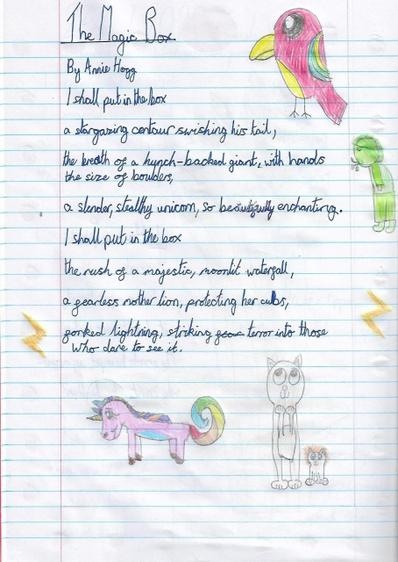 The Magic Box.
By Annie Hogg
I shall put in the box
a stargazing centaur swishing his tail,
the breath of a hunch-backed giant, with hands
the size of boulders,
a slender, stealthy unicorn, so beautifully enchanting.
I shall put in the box
the rush of a majestic, moonlit waterfall,
a fearless mother lion, protecting her cubs,
forked lightning, striking terror into those
who dare to see it.